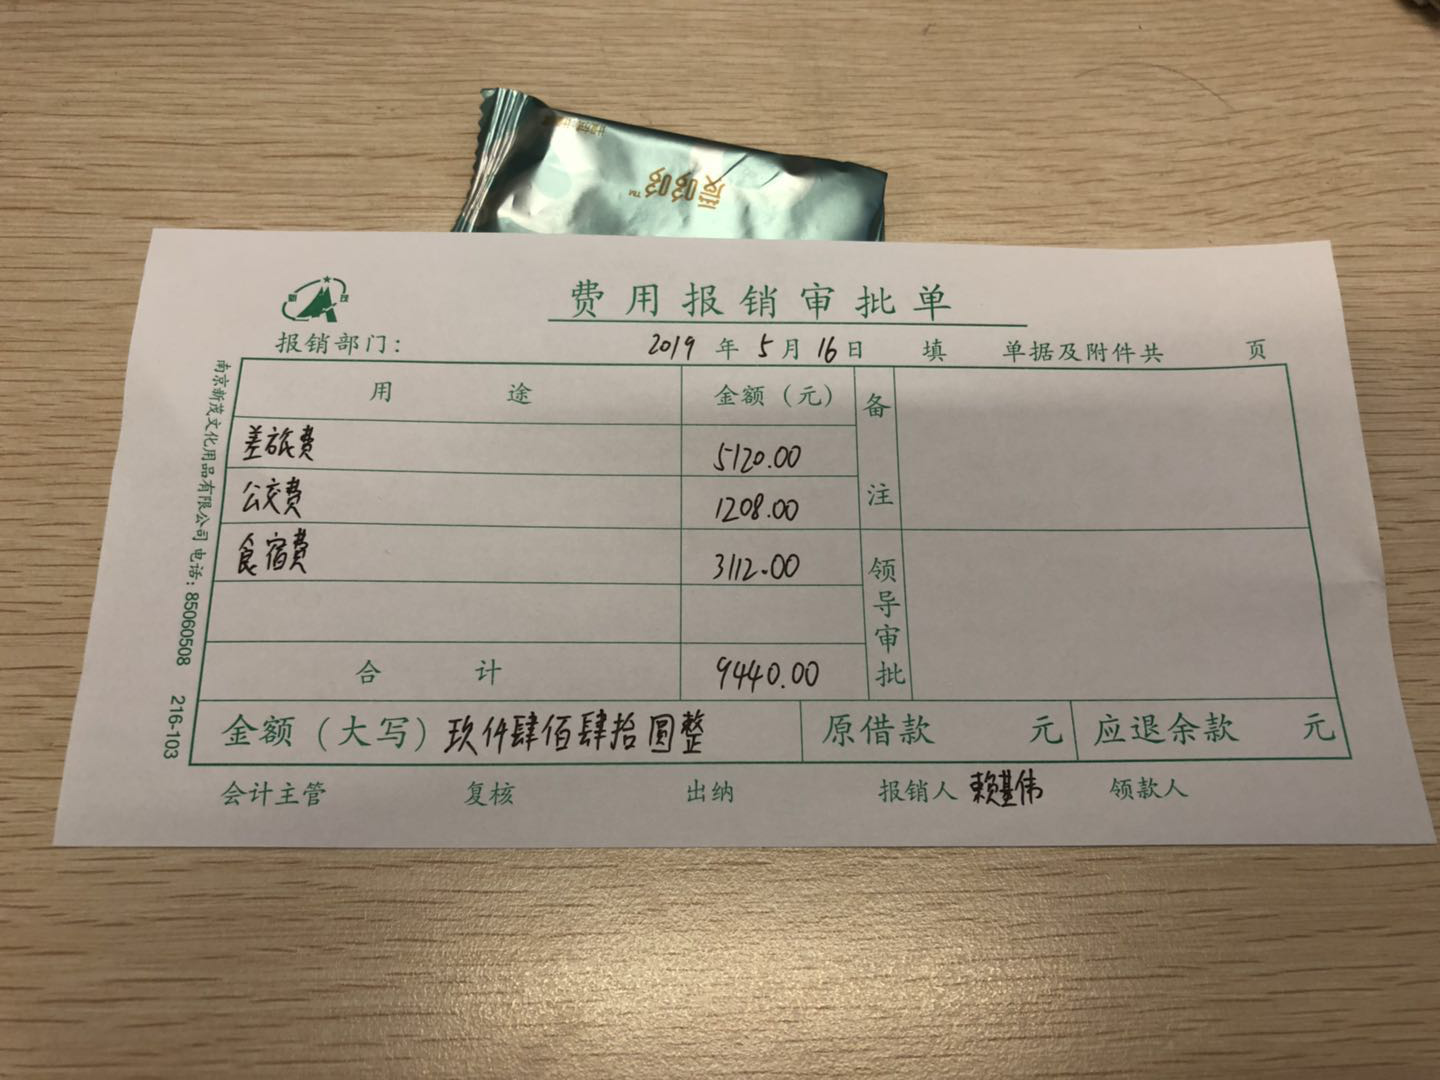 费用报销审批单
报销部门： 2019 年 5 月 16 日 填 单据及附件共 页
用途 金额（元） 备注
差旅费 5120.00
公交费 1208.00
食宿费 3112.00 领导审批
合计 9440.00
金额（大写）玖仟肆佰肆拾圆整 原借款 元 应退余款 元
会计主管 复核 出纳 报销人 赖基伟 领款人
南京新茂文化用品有限公司 电话：85060508 216-103